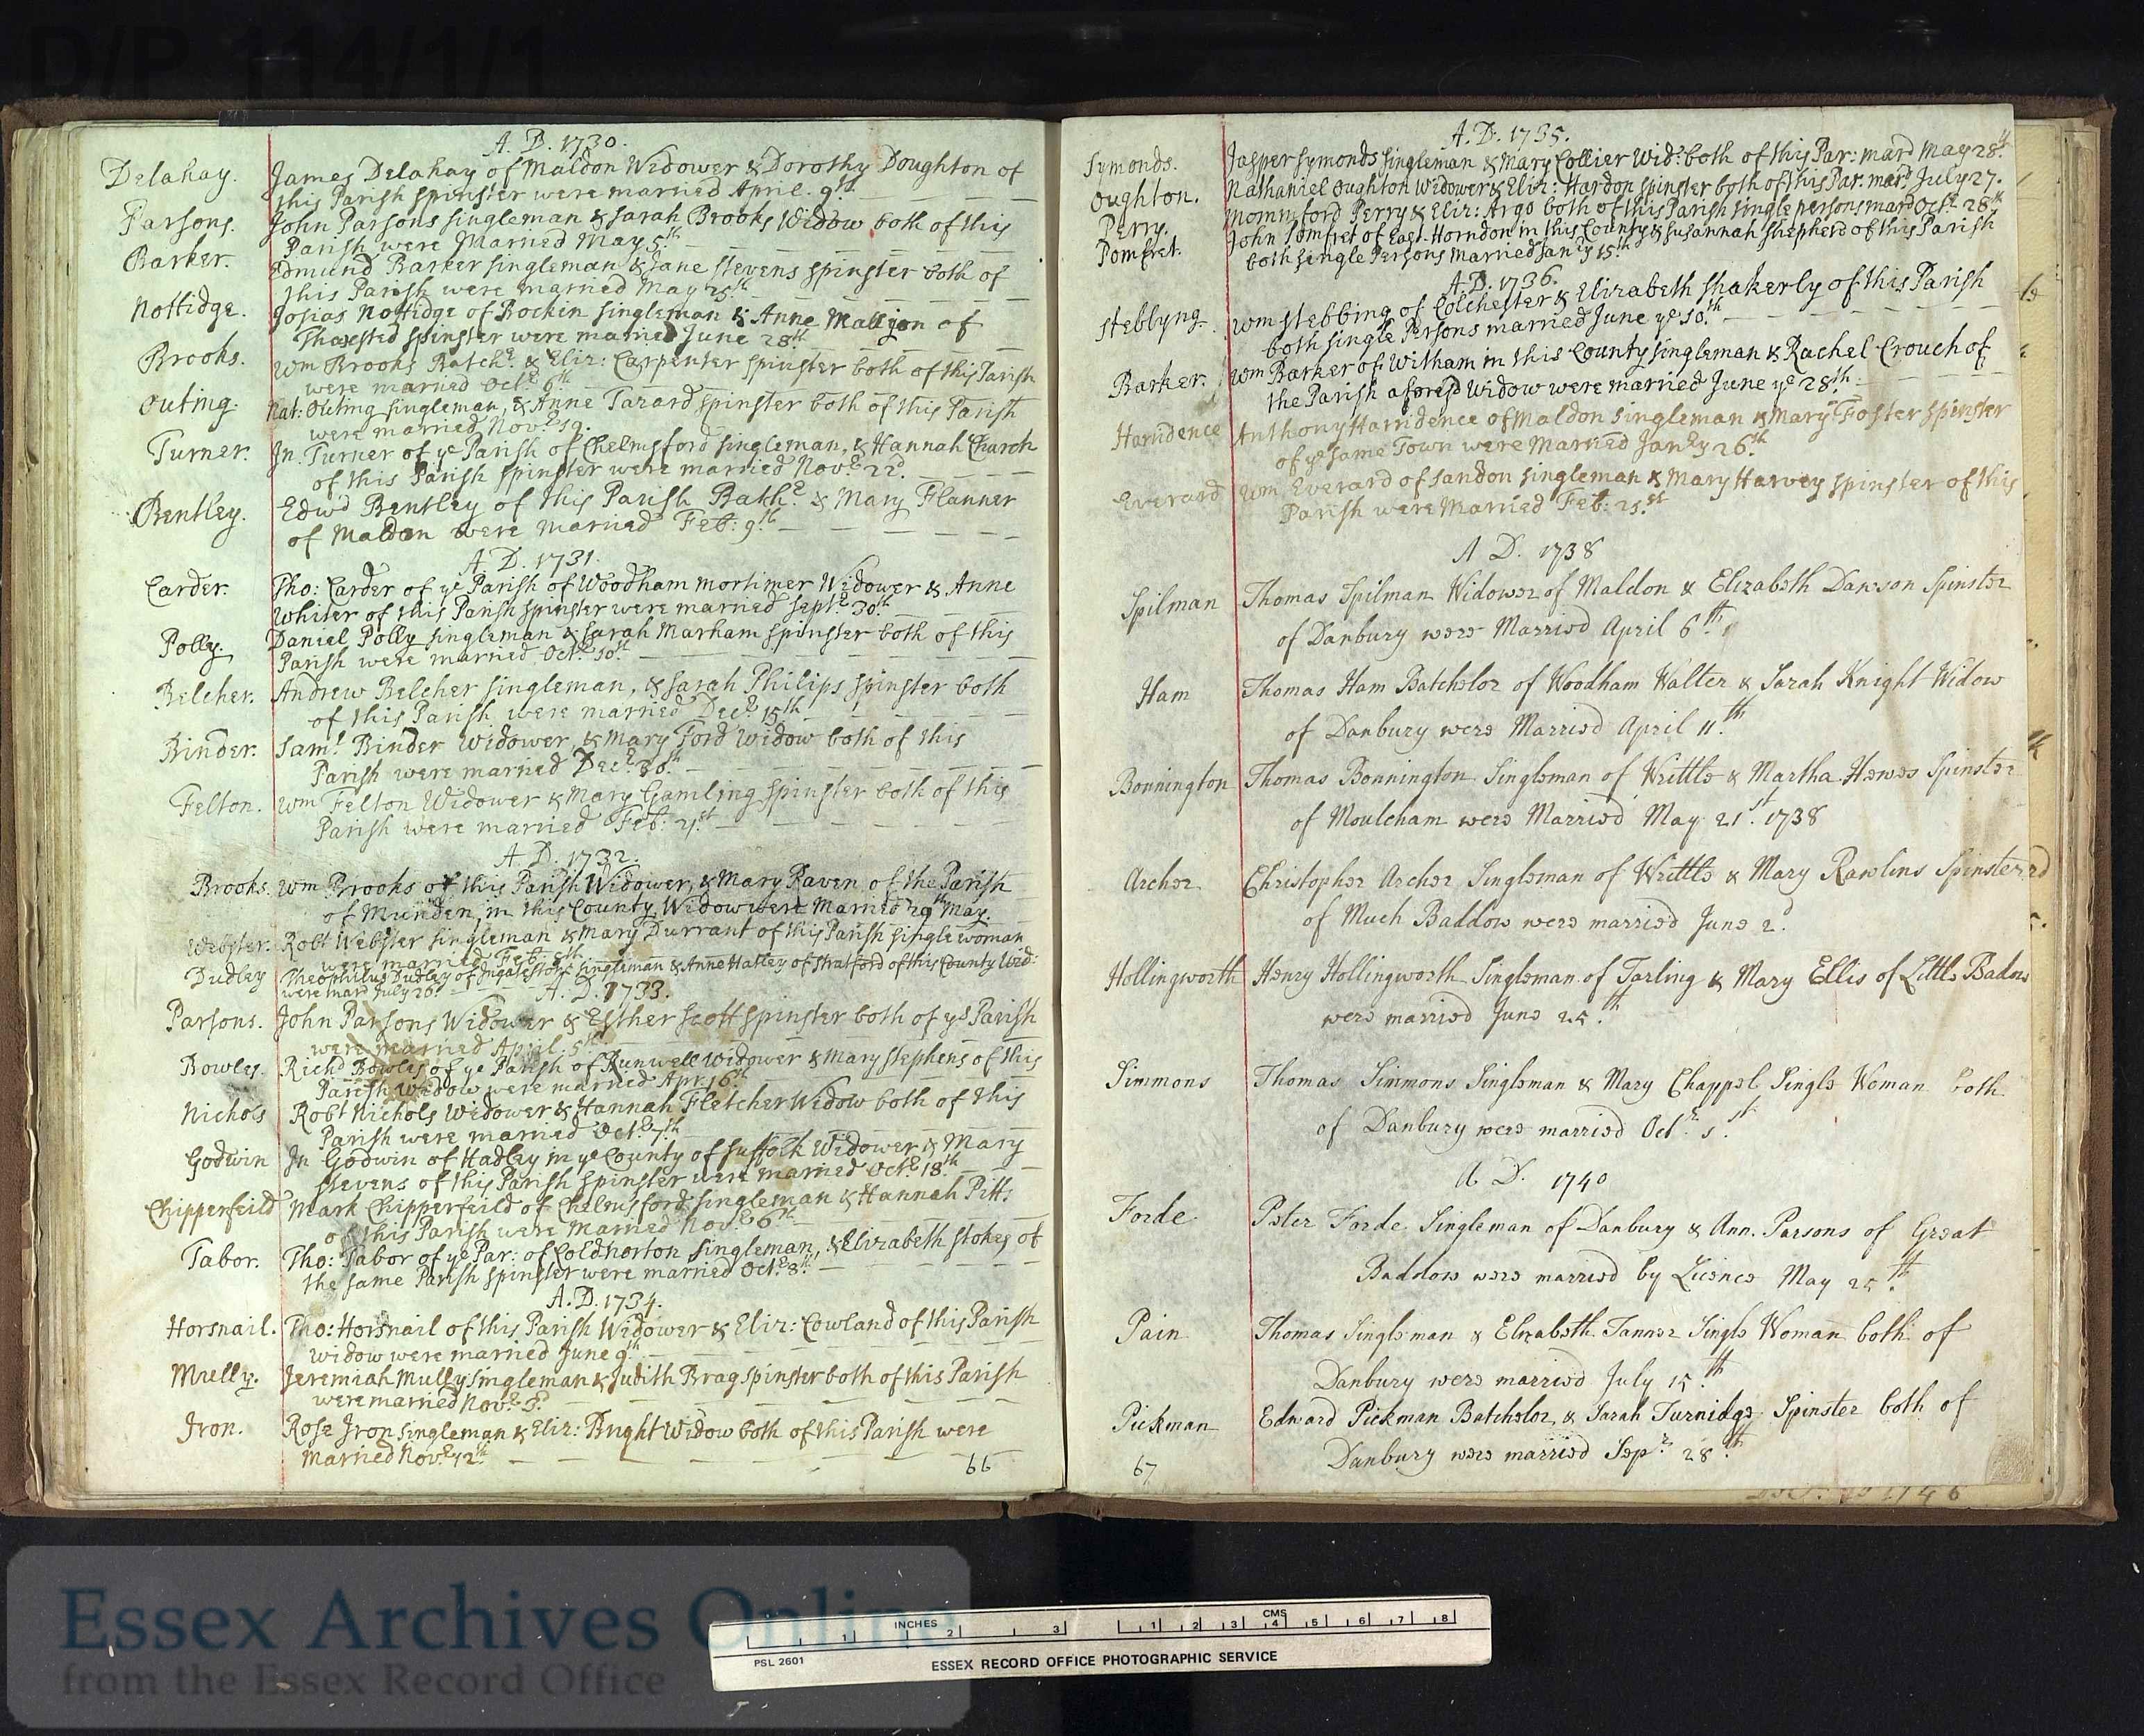 D/P 114/1/1
A. D. 1730.
Delahay. James Delahay of Maldon Widower & Dorothy Doughton of
this Parish Spinster were married April. 9th.
Parsons. John Parsons singleman & Sarah Brooks Widow both of this
Parish were Married May 5th
Barker. Edmund Barker singleman & Jane Stevens spinster both of
this Parish were married May 25th
Nottidge. Josias Nottidge of Bockin singleman & Anne Mallion of
Thaxsted Spinster were married June 28th
Brooks. Wm Brooks Batchr. & Eliz: Carpenter spinster both of this Parish
were married Octr 6th
Outing. Nat: Outing singleman, & Anne Tazard spinster both of this Parish
were married Novr 19.
Turner. Jn. Turner of ye Parish of Chelmsford singleman, & Hannah Church
of this Parish spinster were married Novr 22d.
Bentley. Edwd Bentley of this Parish Bathr & Mary Flanner
of Maldon were married Feb: 9th
A. D. 1731.
Carder. Tho: Carder of ye Parish of Woodham mortimer Widower & Anne
Whiter of this Parish spinster were married Septr 30th
Polly. Daniel Polly singleman & Sarah Marham spinster both of this
Parish were married Octr 10th
Belcher. Andrew Belcher singleman, & Sarah Philips spinster both
of this Parish were married Decr 15th
Binder. Saml Binder Widower, & Mary Ford Widow both of this
Parish were married Decr 30th
Felton. Wm Felton Widower & Mary Gamling spinster both of this
Parish were married Feb: 21st
A. D. 1732.
Brooks. Wm Brooks of this Parish Widower, & Mary Raven of the Parish
of Munden, in this County Widow were Married 29th May.
Webster. Robt Webster singleman & Mary Durrant of this Parish single woman
were married Feb: 8th
Dudley Theophilus Dudley of Ingatestone singleman & Anne Hatley of Stratford of this County Wid:
were mard July 26.
A. D. 1733.
Parsons. John Parsons Widower & Esther Scott spinster both of ys Parish
were married April 5th
Bowles. Richd Bowles of ye Parish of Runwell Widower & Mary Stephens of this
Parish Widow were married Apr. 16th
Nichols Robt Nichols Widower & Hannah Fletcher Widow both of this
Parish were married Octr 7th
Godwin Jn Godwin of Hadley in ye County of Suffolk Widower & Mary
Stevens of this Parish spinster were married Octr 18th
Chipperfeild Mark Chipperfeild of Chelmsford singleman & Hannah Pitts
of this Parish were Married Novr 6th
Tabor. Tho: Tabor of ye Par: of Coldnorton singleman, & Elizabeth Stokes of
the same Parish spinster were married Octr 8th
A. D. 1734.
Horsnail. Tho: Horsnail of this Parish Widower & Eliz: Cowland of this Parish
Widow were married June 9th
Mully. Jeremiah Mully singleman & Judith Brag spinster both of this Parish
were married Novr 3d
Iron. Rose Iron singleman & Eliz: Bright Widow both of this Parish were
married Novr 12th
66
A. D. 1735.
Symonds. Jasper Symonds singleman & Mary Collier Wid: both of this Par: mard May 28th
Oughton. Nathaniel Oughton Widower & Eliz: Hardon spinster both of this Par. mard July 27.
Perry. Mommford Perry & Eliz: Argo both of this Parish single persons mard Octr 28th
Pomfret. John Pomfret of East-Horndon in this County & Susannah Shepherd of this Parish
both single Persons married Janry 15th
A. D. 1736.
Steblyng. Wm Stebbing of Colchester & Elizabeth Shakerly of this Parish
both single Persons married June ye 10th
Barker. Wm Barker of Witham in this County singleman & Rachel Crouch of
the Parish aforesd Widow were married June ye 28th
Harridence Anthony Harridence of Maldon singleman & Mary Foster spinster
of ye same Town were Married Janry 26th
Everard Wm Everard of Sandon singleman & Mary Harvey spinster of this
Parish were Married Feb: 21st
A D. 1738
Spilman Thomas Spilman Widower of Maldon & Elizabeth Dawson Spinster
of Danbury were Married April 6th
Ham Thomas Ham Batchelor of Woodham Walter & Sarah Knight Widow
of Danbury were Married April 11th
Bonnington Thomas Bonnington Singleman of Writtle & Martha Hewes Spinster
of Moulcham were Married May 21st 1738
Archer Christopher Archer Singleman of Writtle & Mary Rawlins Spinster
of Much Baddow were married June 2d.
Hollingworth Henry Hollingworth Singleman of Tarling & Mary Ellis of Little Badow
were married June 25th
Simmons Thomas Simmons Singleman & Mary Chappel Single Woman both
of Danbury were married Octr 1st
A D. 1740
Forde Peter Forde Singleman of Danbury & Ann Parsons of Great
Baddow were married by Licence May 25th
Pain Thomas Singleman & Elizabeth Tanner Single Woman both of
Danbury were married July 15th
Pickman Edward Pickman Batchelor & Sarah Turnidge Spinster both of
Danbury were married Sepr 28th
67
Essex Archives Online
from the Essex Record Office
INCHES 1 2 3 CMS 1 2 3 4 5 6 7 8
PSL 2601 ESSEX RECORD OFFICE PHOTOGRAPHIC SERVICE